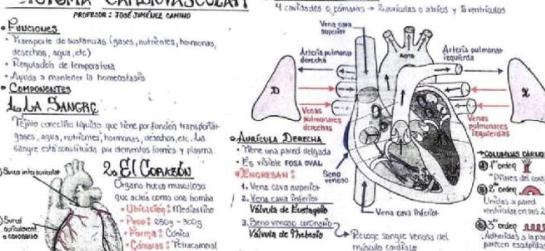 SISTEMA CARDIOVASCULAR
PROFESOR: JOSÉ JIMÉNEZ CAMINO
• FUNCIONES
• Transporte de sustancias (gases, nutrientes, hormonas,
desechos, agua, etc)
• Regulación de temperatura
• Ayuda a mantener la homeostasis
• COMPONENTES
1. LA SANGRE
Tejido conectivo líquido que tiene por función transportar
gases, agua, nutrientes, hormonas, desechos, etc. La
sangre está constituida por elementos formes y plasma.
2. El CORAZÓN
Órgano hueco musculoso
que actúa como una bomba
• Ubicación: Mediastino
• Peso: 250g - 300g
• Forma: Cónica
• Cámaras: Tetracameral
Surco
o coronario
4 cavidades o cámaras → 2 aurículas o atrios y 2 ventrículos
Vena cava
superior
Arteria pulmonar
derecha
Aorta
Arteria pulmonar
izquierda
Venas
pulmonares
derechas
Venas
pulmonares
izquierdas
Seno
venoso
Vena cava inferior
• AURÍCULA DERECHA
• Tiene una pared delgada
• Es visible FOSA OVAL
• INGRESAN:
1. Vena cava superior
2. Vena cava inferior
Válvula de Eustaquio
3. Seno venoso coronario
Válvula de Thebesio
Recoge sangre venosa del
músculo cardíaco
1º orden
2º orden
3 orden